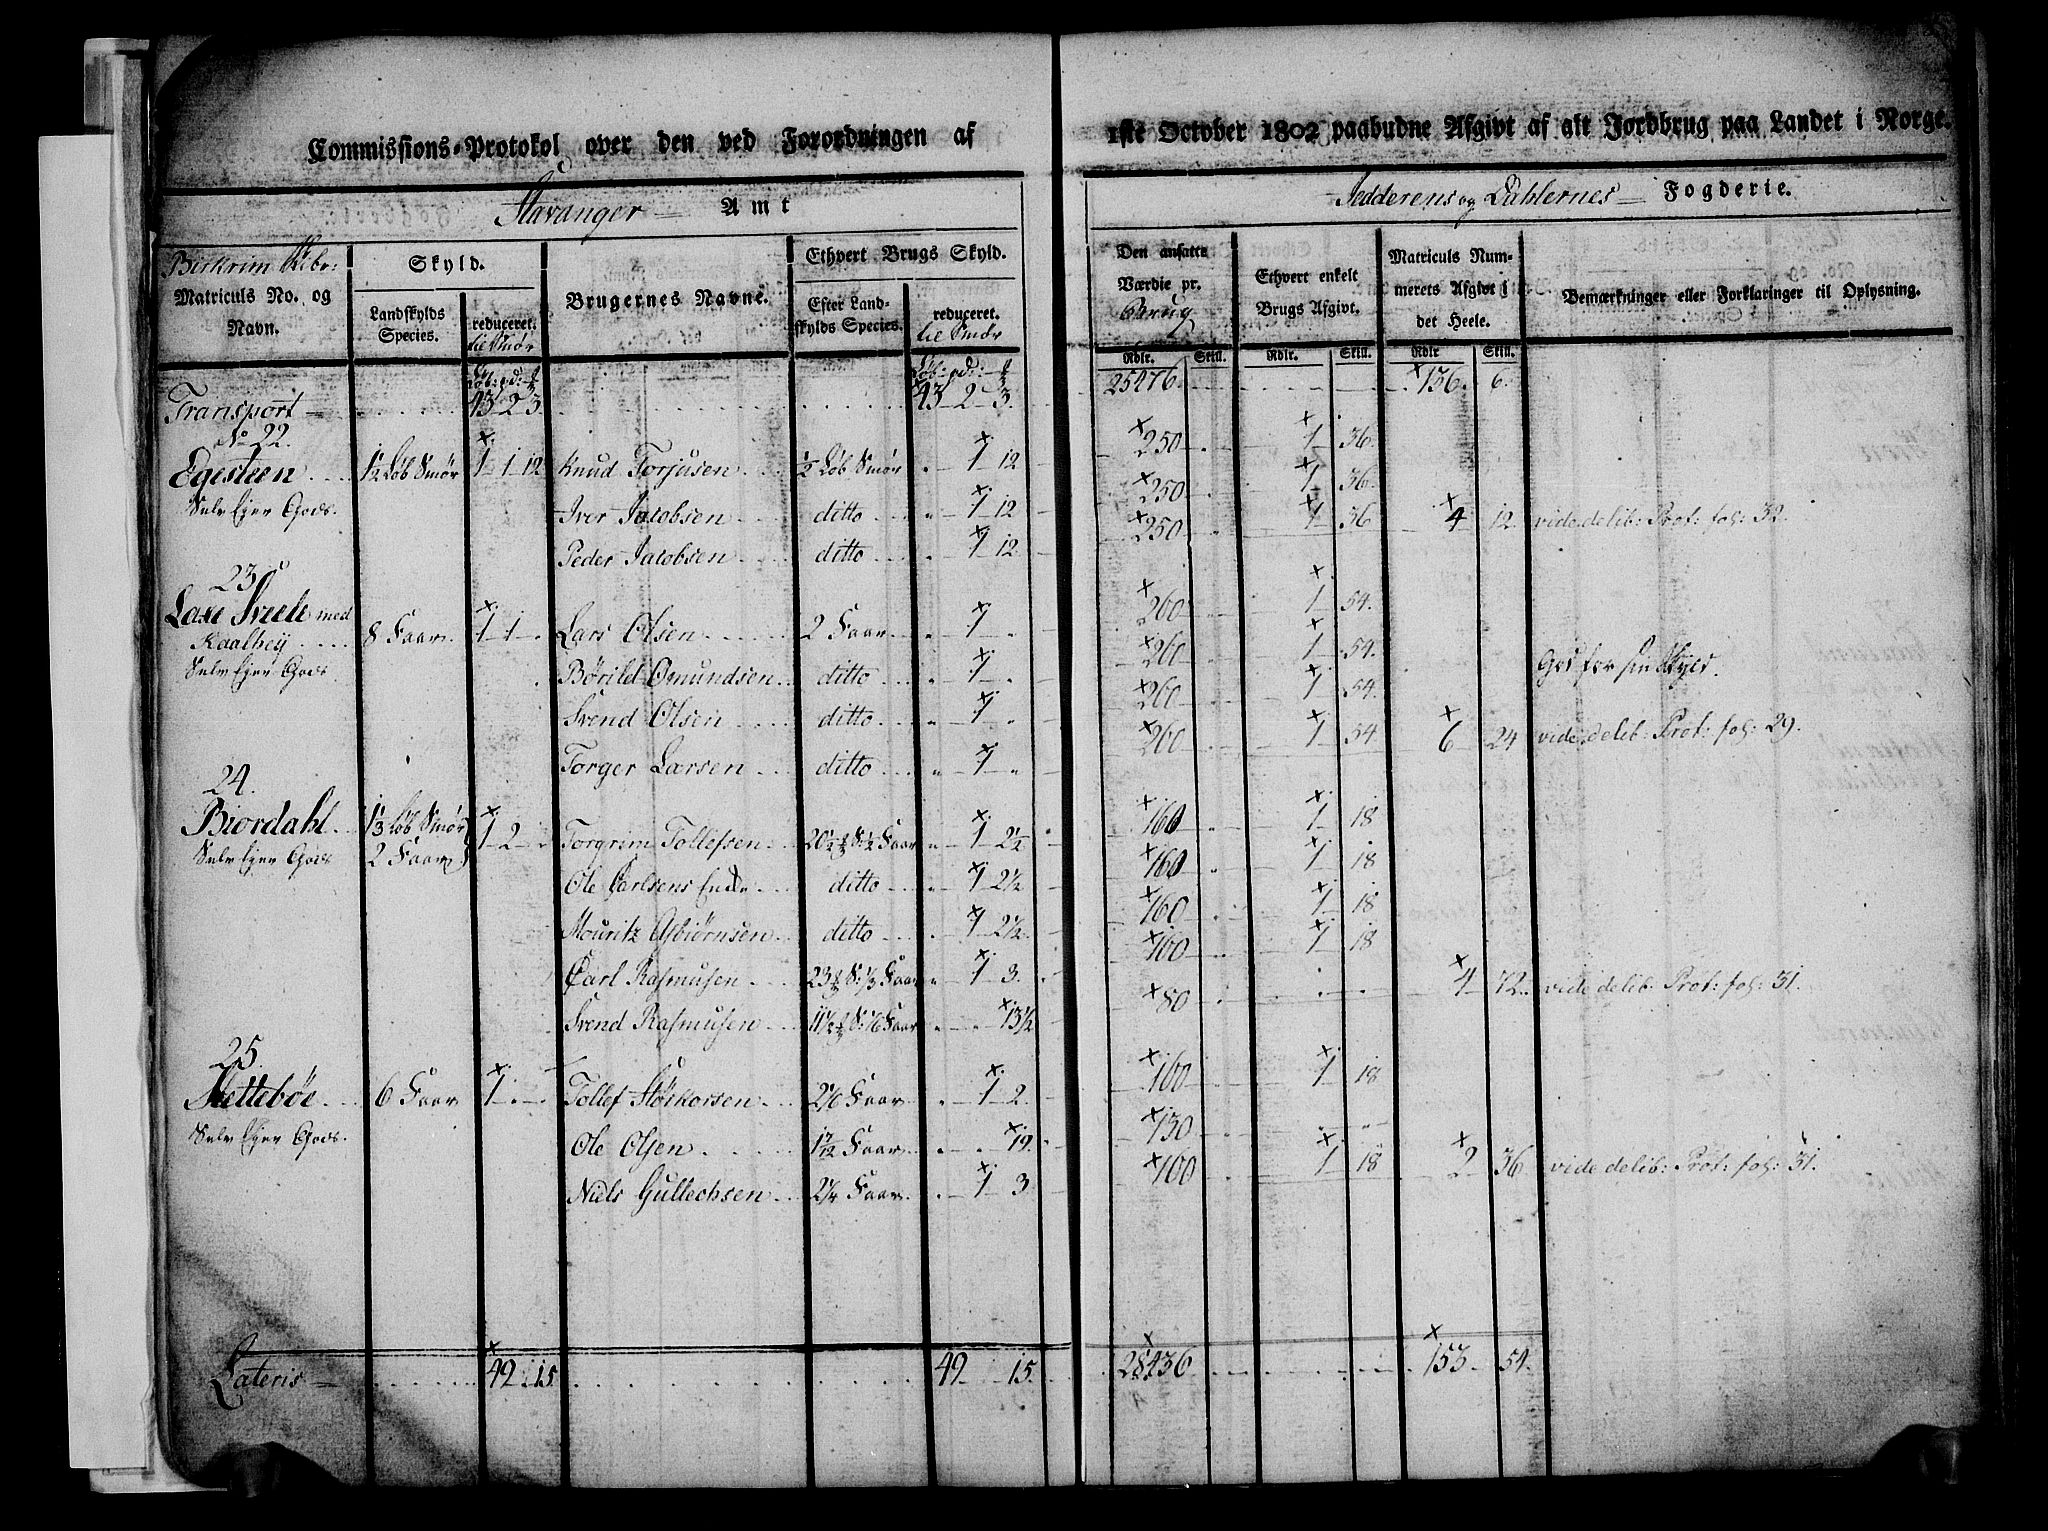 Commissions-Protokol over den ved Forordningen af 1ste October 1802 paabudne Afgivt af alt Jordbrug paa Landet i Norge.
Stavanger Amt
Jedderens og Dahlernes Fogderie.
Birkrim Skibr:
Matriculs No. og Navn.
Skyld.
Landskylds Species.
reduceret. til Smør
Brugernes Navne.
Ethvert Brugs Skyld.
Efter Landskylds Species.
reduceret. til Smør
Den ansatte Værdie pr. Brug
Ethvert enkelt Brugs Afgivt.
Matriculs Nummerets Afgivt i det Heele.
Bemærkninger eller Forklaringer til Oplysning.
Rdlr. Skill. Rdlr. Skill. Rdlr Skill.
Løb: pd: Løb: pd:
Transport 43 2 3 43 2 3. 25476. 136. 6.
No 22.
Egesteen 1½ Løb Smør 1 1 12 Knud Torjusen ½ Løb Smør 1 12 250 1 36.
Selv Ejer Gods. Iver Jacobsen ditto 1 12 250 1 36.
Peder Jacobsen ditto 1 12 250 1 36 4 12 vide delib: Prot: fol: 32.
23.
Laxe Svele med
Kaalhey 8 Faar 1 1 Lars Olsen 2 Faar 1 260 1 54.
Selv Ejer Gods. Børild Omundsen ditto 1 260 1 54.
Svend Olsen ditto 1 260 1 54
Torger Larsen ditto 1 260 1 54 6 24 vide delib: Prot: fol: 29.
24.
Biordahl 1⅓ Løb Smør 2 Faar 1 2 Torgrim Tollefsen 20½ S: ½ Faar 1 2½ 160 1 18
Selv Ejer Gods Ole Carlsens Enke ditto 1 2½ 160 1 18
Mouritz Asbiørnsen ditto 1 2½ 160 1 18
Carl Rasmusen 23 S: ⅓ Faar 1 3. 160 1 18
Svend Rasmusen 11½ S: ⅙ Faar 13½ 80 4 72 vide delib: Prot: fol: 31.
25.
Slettebøe 6 Faar 1 Tollef Størkorsen 2⅙ Faar 1 2. 160 1 18
Selv Ejer Gods. Ole Olsen 1 7/12 Faar 19. 130
Niels Gullechsen 2¼ Faar 1 3 160 1 18 2 36 vide delib: Prot: fol: 31.
Lateris 49 15 49 15. 28436 153. 54.